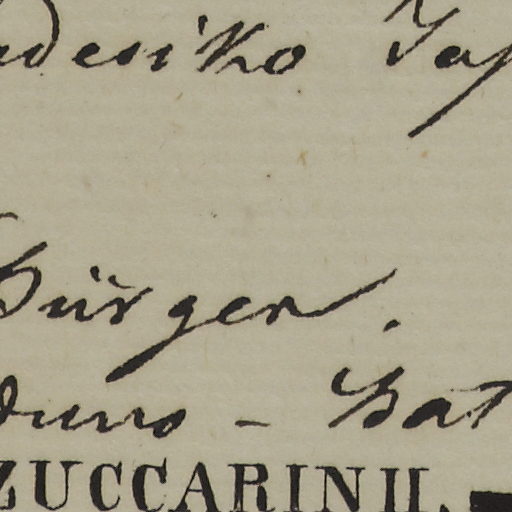 desiko Jap
Bürger.
Bat
ZUCCARINII.